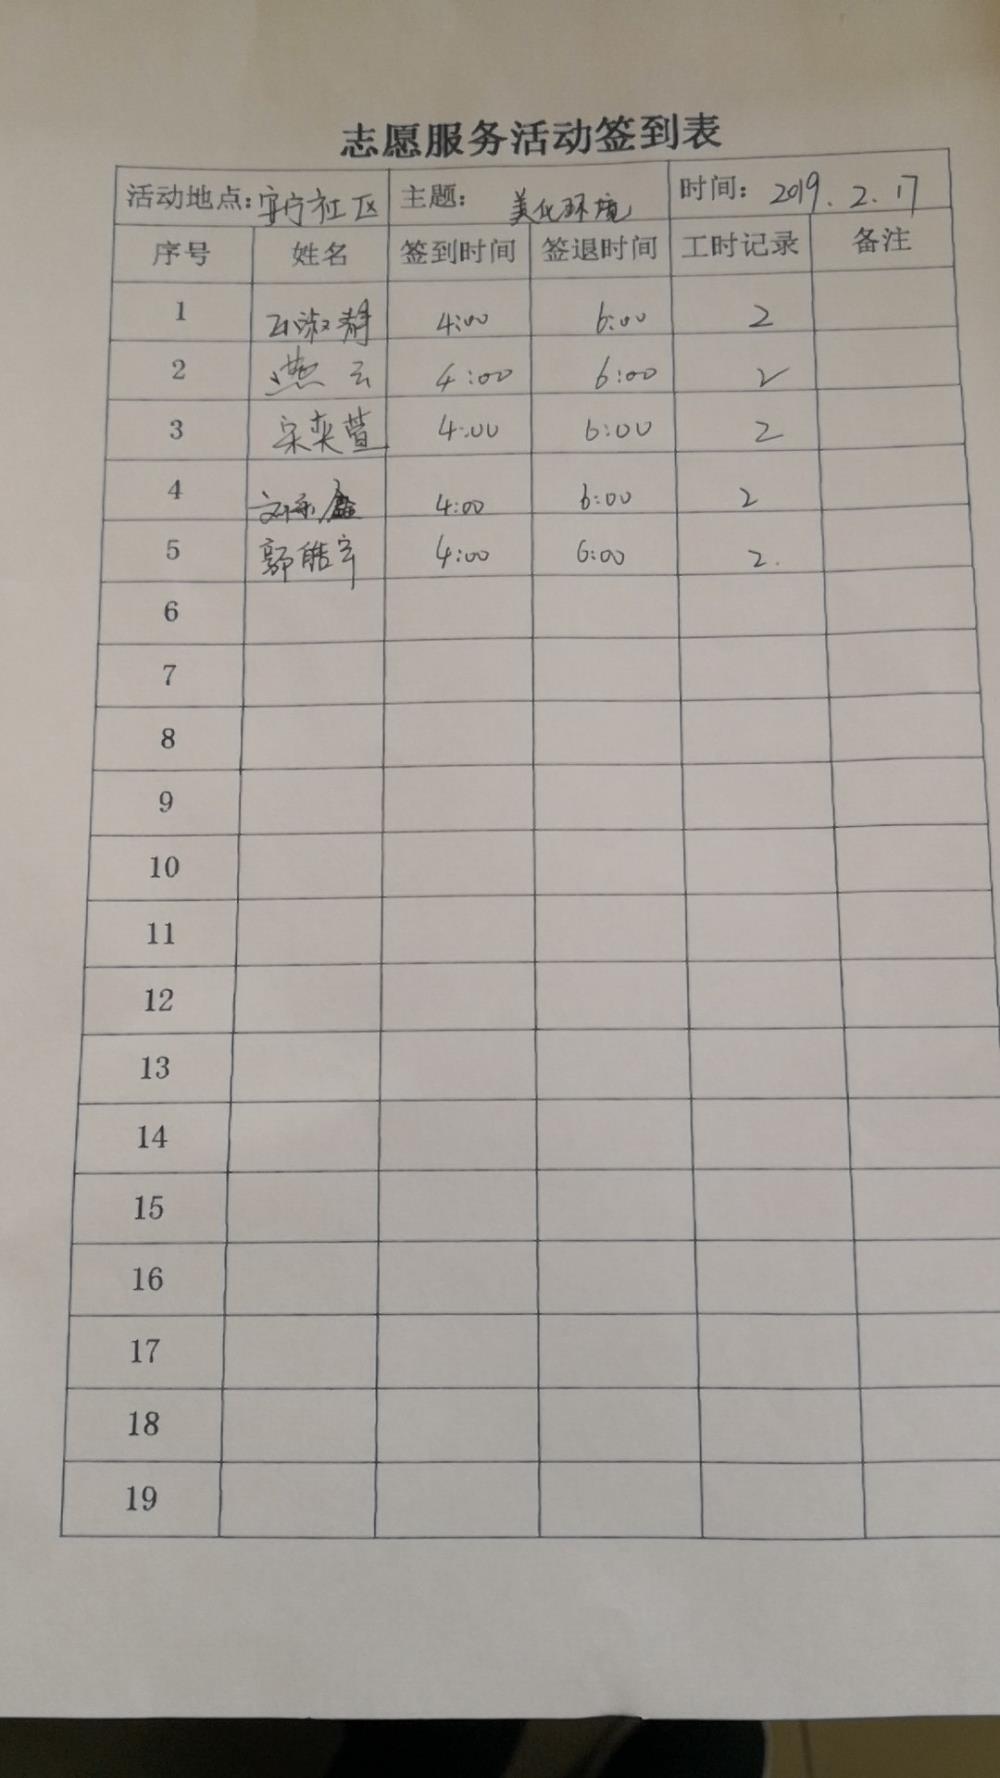 志愿服务活动签到表
活动地点:安宁社区 主题: 美化环境 时间: 2019.2.17
序号 姓名 签到时间 签退时间 工时记录 备注
1 淑静 4:00 6:00 2
2 燕云 4:00 6:00 2
3 宋奕萱 4:00 6:00 2
4 4:00 6:00 2
5 郭皓宇 4:00 6:00 2.
6
7
8
9
10
11
12
13
14
15
16
17
18
19